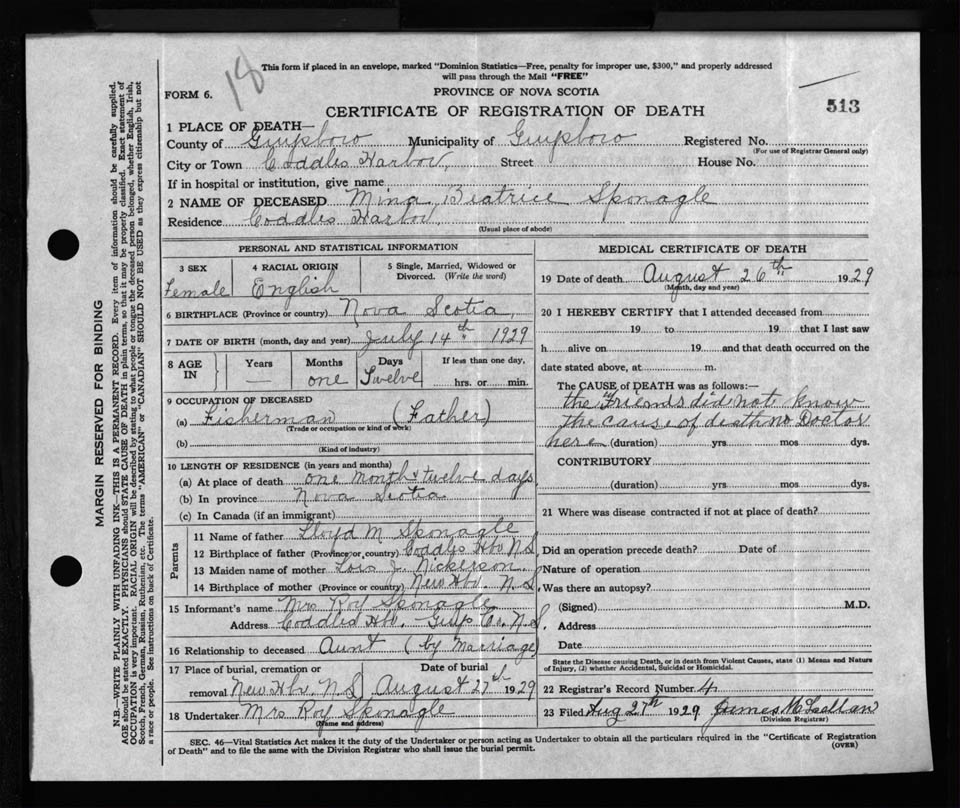 18
This form if placed in an envelope, marked "Dominion Statistics—Free, penalty for improper use, $300," and properly addressed
will pass through the Mail "FREE"
FORM 6.
PROVINCE OF NOVA SCOTIA
513
CERTIFICATE OF REGISTRATION OF DEATH
1 PLACE OF DEATH—
County of Guysboro Municipality of Guysboro Registered No.
(For use of Registrar General only)
City or Town Coddles Harbor, Street House No.
If in hospital or institution, give name
2 NAME OF DECEASED Mina Beatrice Sponagle
Residence Coddles Harbor
(Usual place of abode)
PERSONAL AND STATISTICAL INFORMATION
3 SEX 4 RACIAL ORIGIN 5 Single, Married, Widowed or
Divorced. (Write the word)
Female English
6 BIRTHPLACE (Province or country) Nova Scotia,
7 DATE OF BIRTH (month, day and year) July 14th 1929
8 AGE IN Years Months Days If less than one day,
— one Twelve hrs. or min.
9 OCCUPATION OF DECEASED
(a) Fisherman (Father)
(Trade or occupation or kind of work)
(b)
(Kind of industry)
10 LENGTH OF RESIDENCE (in years and months)
(a) At place of death one month & twelve days
(b) In province Nova Scotia
(c) In Canada (if an immigrant)
Parents
11 Name of father Lloyd M Sponagle
12 Birthplace of father (Province or country) Coddles Hbr N.S
13 Maiden name of mother Lois J. Nickerson.
14 Birthplace of mother (Province or country) New Hbr. N.S.
15 Informant's name Mrs Roy Sponagle
Address Coddles Hbr. - Guys Co. N.S.
16 Relationship to deceased Aunt (by Marriage)
17 Place of burial, cremation or Date of burial
removal New Hbr. N.S. August 27th 1929
18 Undertaker Mrs Roy Sponagle
(Name and address)
MEDICAL CERTIFICATE OF DEATH
19 Date of death August 26th 1929
(Month, day and year)
20 I HEREBY CERTIFY that I attended deceased from
19 to 19 that I last saw
h alive on 19 and that death occurred on the
date stated above, at m.
The CAUSE of DEATH was as follows:—
the Friends did not know
the cause of death no Doctor
here (duration) yrs mos dys.
CONTRIBUTORY
(duration) yrs mos dys.
21 Where was disease contracted if not at place of death?
Did an operation precede death? Date of
Nature of operation
Was there an autopsy?
(Signed) M.D.
Address
Date
State the Disease causing Death, or in death from Violent Causes, state (1) Means and Nature
of Injury, (2) whether Accidental, Suicidal or Homicidal.
22 Registrar's Record Number 4
23 Filed Aug 27th 1929 James McLellan
(Division Registrar)
SEC. 46—Vital Statistics Act makes it the duty of the Undertaker or person acting as Undertaker to obtain all the particulars required in the "Certificate of Registration
of Death" and to file the same with the Division Registrar who shall issue the burial permit.
(OVER)
MARGIN RESERVED FOR BINDING
N.B.—WRITE PLAINLY WITH UNFADING INK—THIS IS A PERMANENT RECORD. Every item of information should be carefully supplied.
AGE should be stated EXACTLY. PHYSICIANS should STATE CAUSE OF DEATH in plain terms, so that it may be properly classified. Exact statement of
OCCUPATION is very important. RACIAL ORIGIN will be described by stating to what people or tongue the deceased person belonged, whether English, Irish,
Scotch, French, German, Russian, Ruthenian, etc. The terms "AMERICAN" or "CANADIAN" SHOULD NOT BE USED as they express citizenship but not
a race or people. See instructions on back of Certificate.